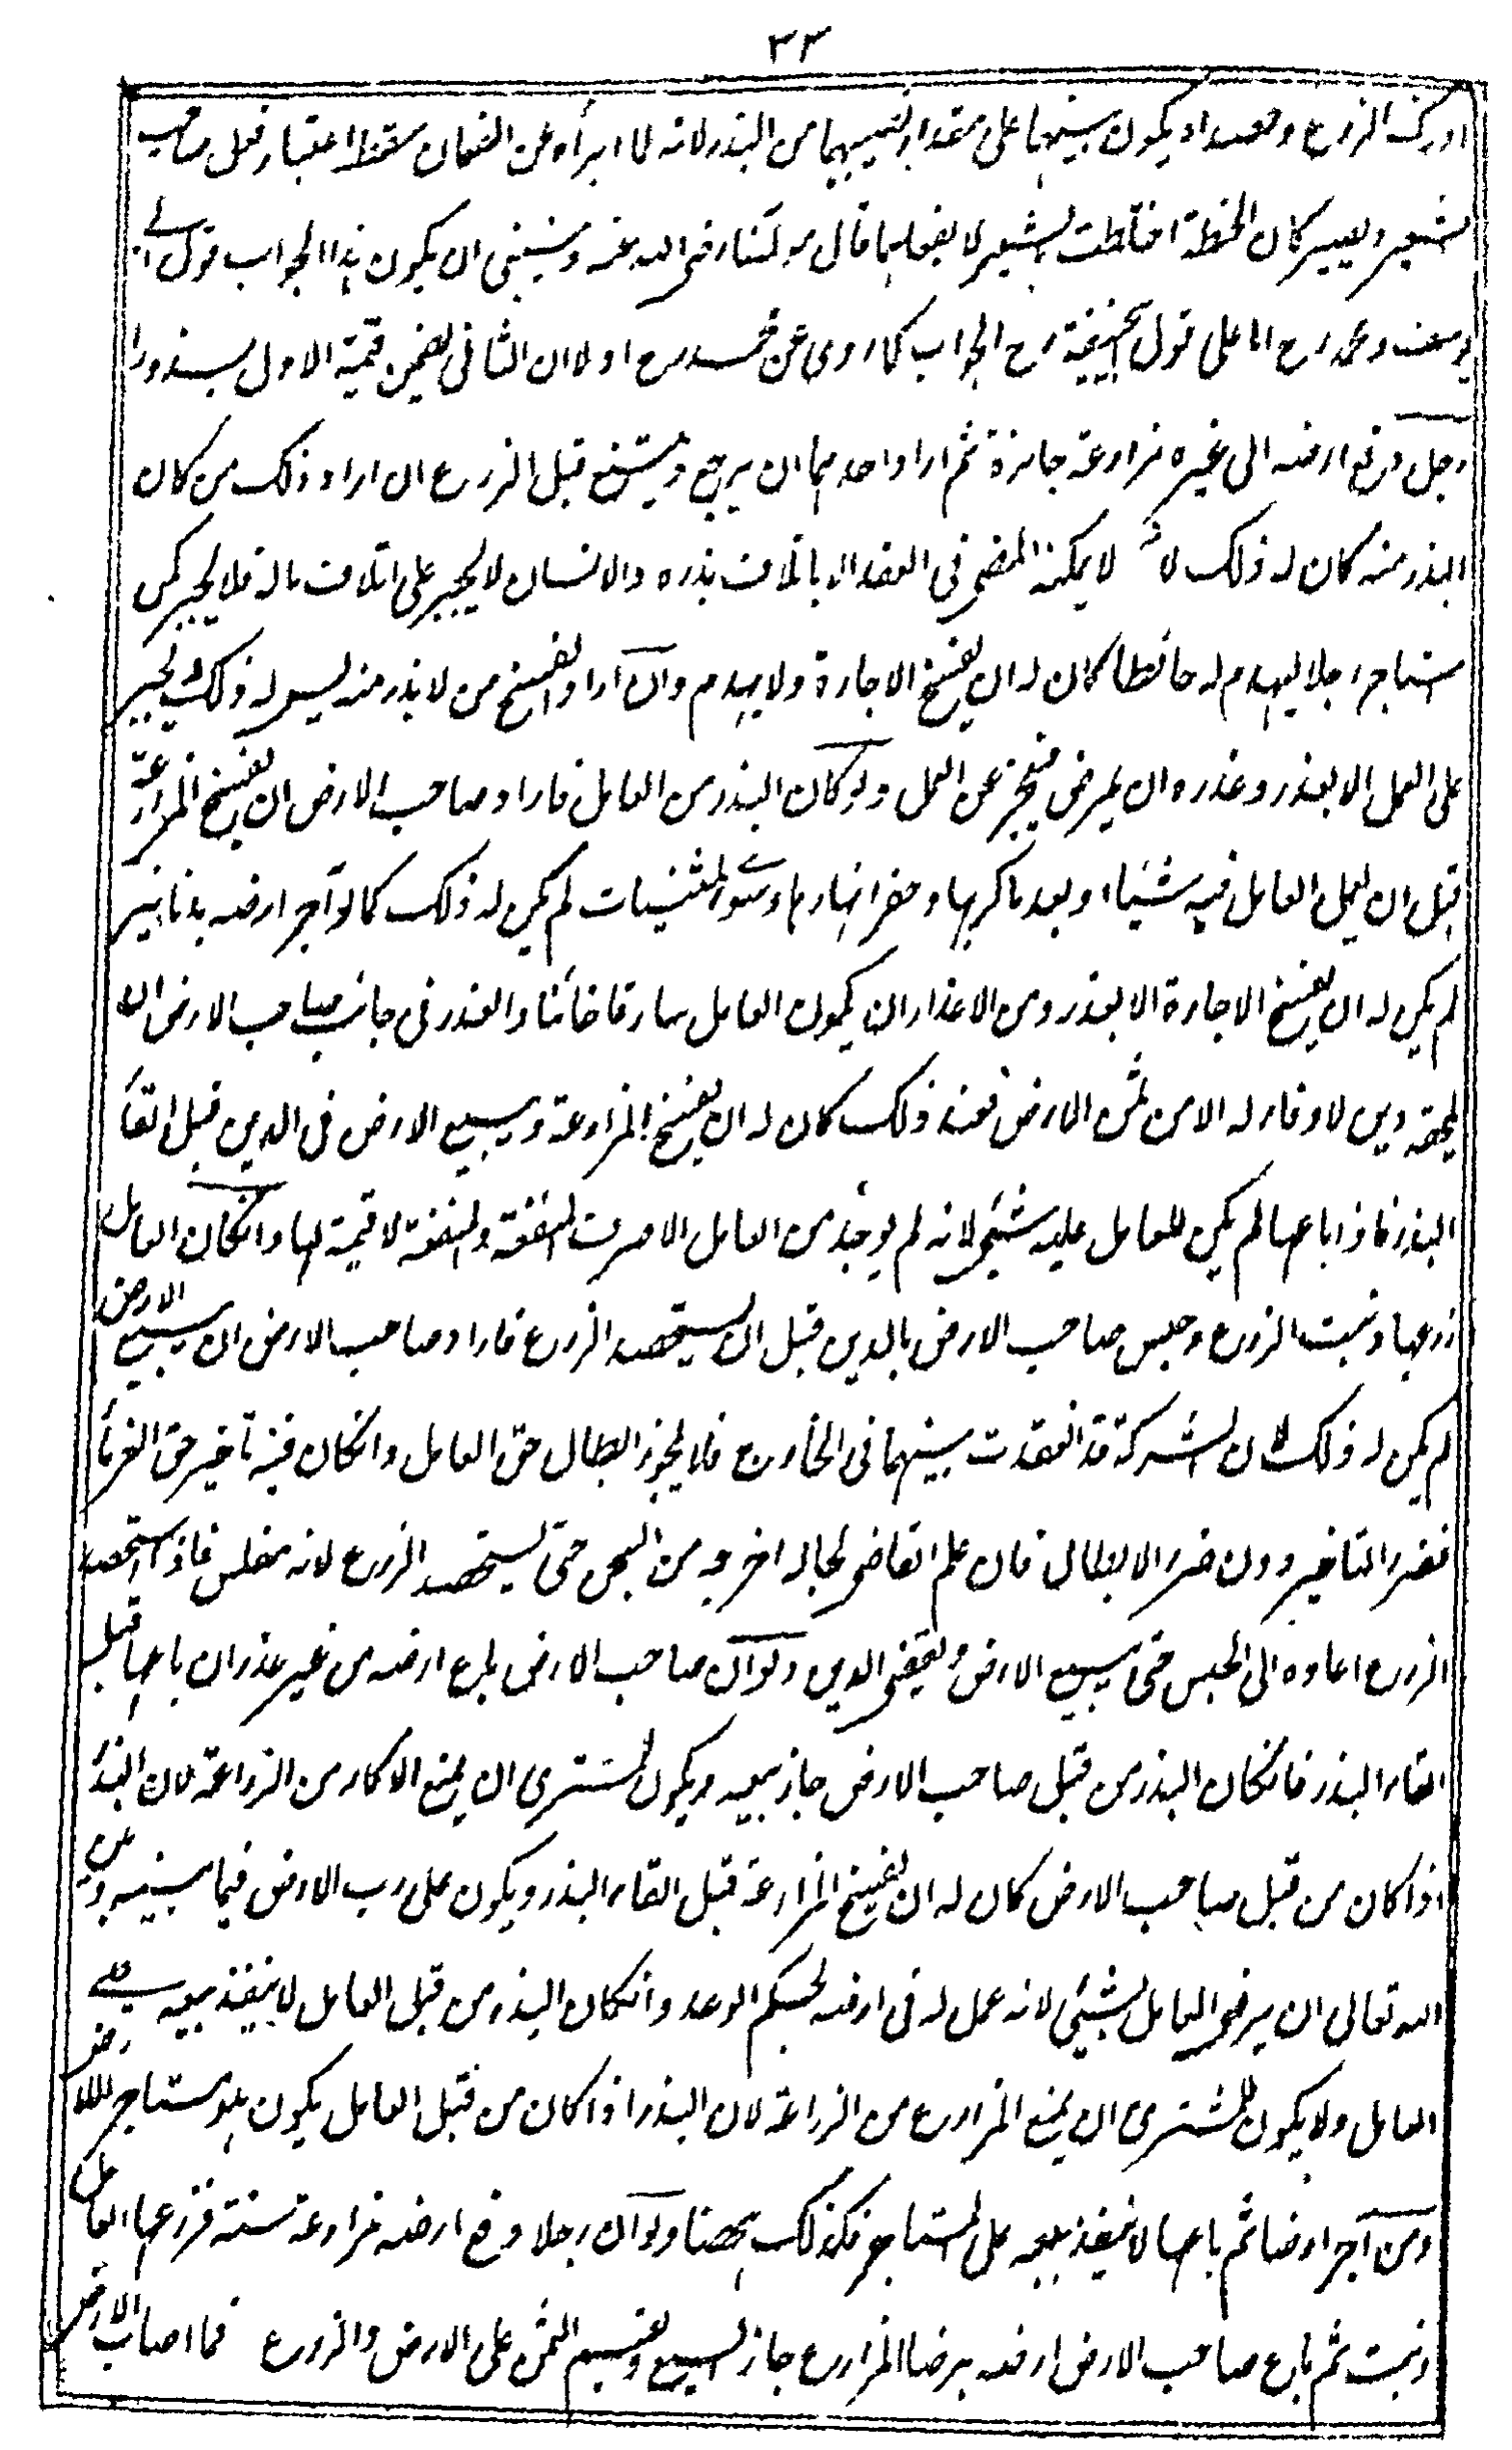 ٣٣
ادرك الزرع وحصداه يكون بينهما على مقدار نصيبهما من البذر لانه لما ابرأه عن الضمان سقط اعتبار فعل صاحب
الشعير ويصير كان الحنطة اختلطت بالشعير لا بفعلهما قال مولٰنا رضى الله عنه وينبغى ان يكون هذا الجواب قول ابے
يوسف ومحمد رح اما على قول ابيحنيفة رح الجواب كما روى عن محمد رح اولا ان الثانى يضمن قيمة الاول مبذورا
رجل دفع ارضه الى غيره مزارعة جائزة ثم اراد احدهما ان يرجع ويمتنع قبل الزرع ان اراد ذلك من كان
البذر منه كان له ذلك لانه لا يمكنه المضى فى العقد الا باتلاف بذره والانسان لا يجبر على اتلاف ماله فلا يجبر كمن
استاجر رجلا ليهدم له حائطا كان له ان يفسخ الاجارة ولا يهدم وان اراد الفسخ من لا بذر منه ليس له ذلك ويجبر
على العمل الا بعذر وعذره ان يمرض فيعجز عن العمل ولو كان البذر من العامل فاراد صاحب الارض ان يفسخ المزارعة
قبل ان يعمل العامل فيه شيئا او بعد ما كربها وحفر انهارها وسوے المسنيات لم يكن له ذلك كما لو آجر ارضه بدنانير
لم يكن له ان يفسخ الاجارة الا بعذر ومن الاعذار ان يكون العامل سارقا خائنا والعذر فى جانب صاحب الارض ان
يلحقه دين لا وفاء له الا من ثمن الارض فعند ذلك كان له ان يفسخ المزارعة ويبيع الارض فى الدين قبل القاء
البذر فاذا باعها لم يكن للعامل عليه شئ لانه لم يوجد من العامل الا صرف المنفعة والمنفعة لا قيمة لها وانكان العامل
زرعها ونبت الزرع وحبس صاحب الارض بالدين قبل ان يستحصد الزرع فاراد صاحب الارض ان يبيع الارض
لم يكن له ذلك لان الشركة قد انعقدت بينهما فى الخارج فلا يجوز ابطال حق العامل وانكان فيه تاخير حق الغرماء
فضرر التاخير دون ضرر الابطال فان علم القاضى بحاله اخرجه من السجن حتى يستحصد الزرع لانه مفلس فاذا استحصد
الزرع اعاده الى الحبس حتى يبيع الارض ويقضى الدين ولو ان صاحب الارض باع ارضه من غير عذر ان باعها قبل
القاء البذر فانكان البذر من قبل صاحب الارض جاز بيعه ويكون للمشترى ان يمنع الاكار من الزراعة لان البذر
اذا كان من قبل صاحب الارض كان له ان يفسخ المزارعة قبل القاء البذر ويكون على رب الارض فيما بينه وبين
الله تعالى ان يرضى العامل بشئ لانه عمل له فى ارضه بحكم الوعد وانكان البذر من قبل العامل لا ينفذ بيعه علے
العامل ولا يكون للمشترى ان يمنع المزارع من الزراعة لان البذر اذا كان من قبل العامل يكون هو مستاجر للارض
ومن آجر ارضا ثم باعها لا ينفذ بيعه على المستاجر فكذلك ههنا ولو ان رجلا دفع ارضه مزارعة سنة فزرعها العامل
ونبت ثم باع صاحب الارض ارضه برضا المزارع جاز البيع ويقسم الثمن على الارض والزرع فما اصاب الارض